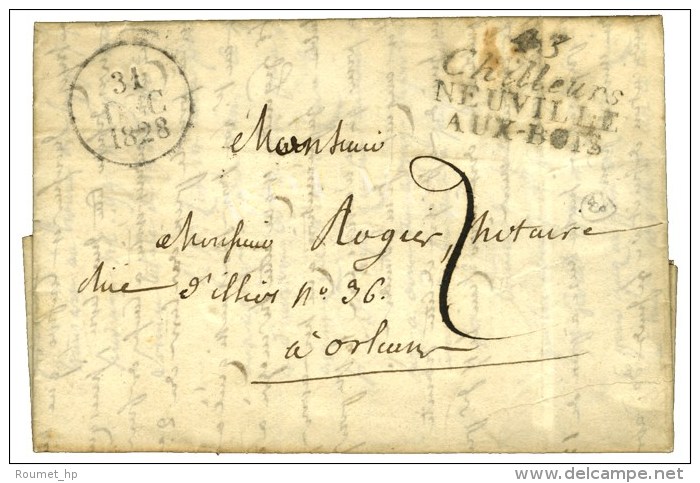 31
DEC
1828
43
Chilleurs
NEUVILLE
AUX-BOIS
Monsieur
Monsieur Rogier, notaire
Rue d'illiers no. 36.
à orleans
2
Roumet_hp
©delcampe.net